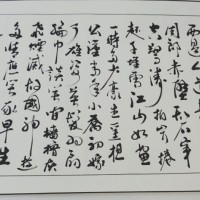 周郎赤壁亂石穿
空驚濤拍岸捲
起千堆雪江山如畫
一時多少豪杰遙想
公瑾當年小喬初嫁
了雄姿英發羽扇
綸巾談笑間檣櫓灰
飛煙滅故國神遊
多情應笑我早生